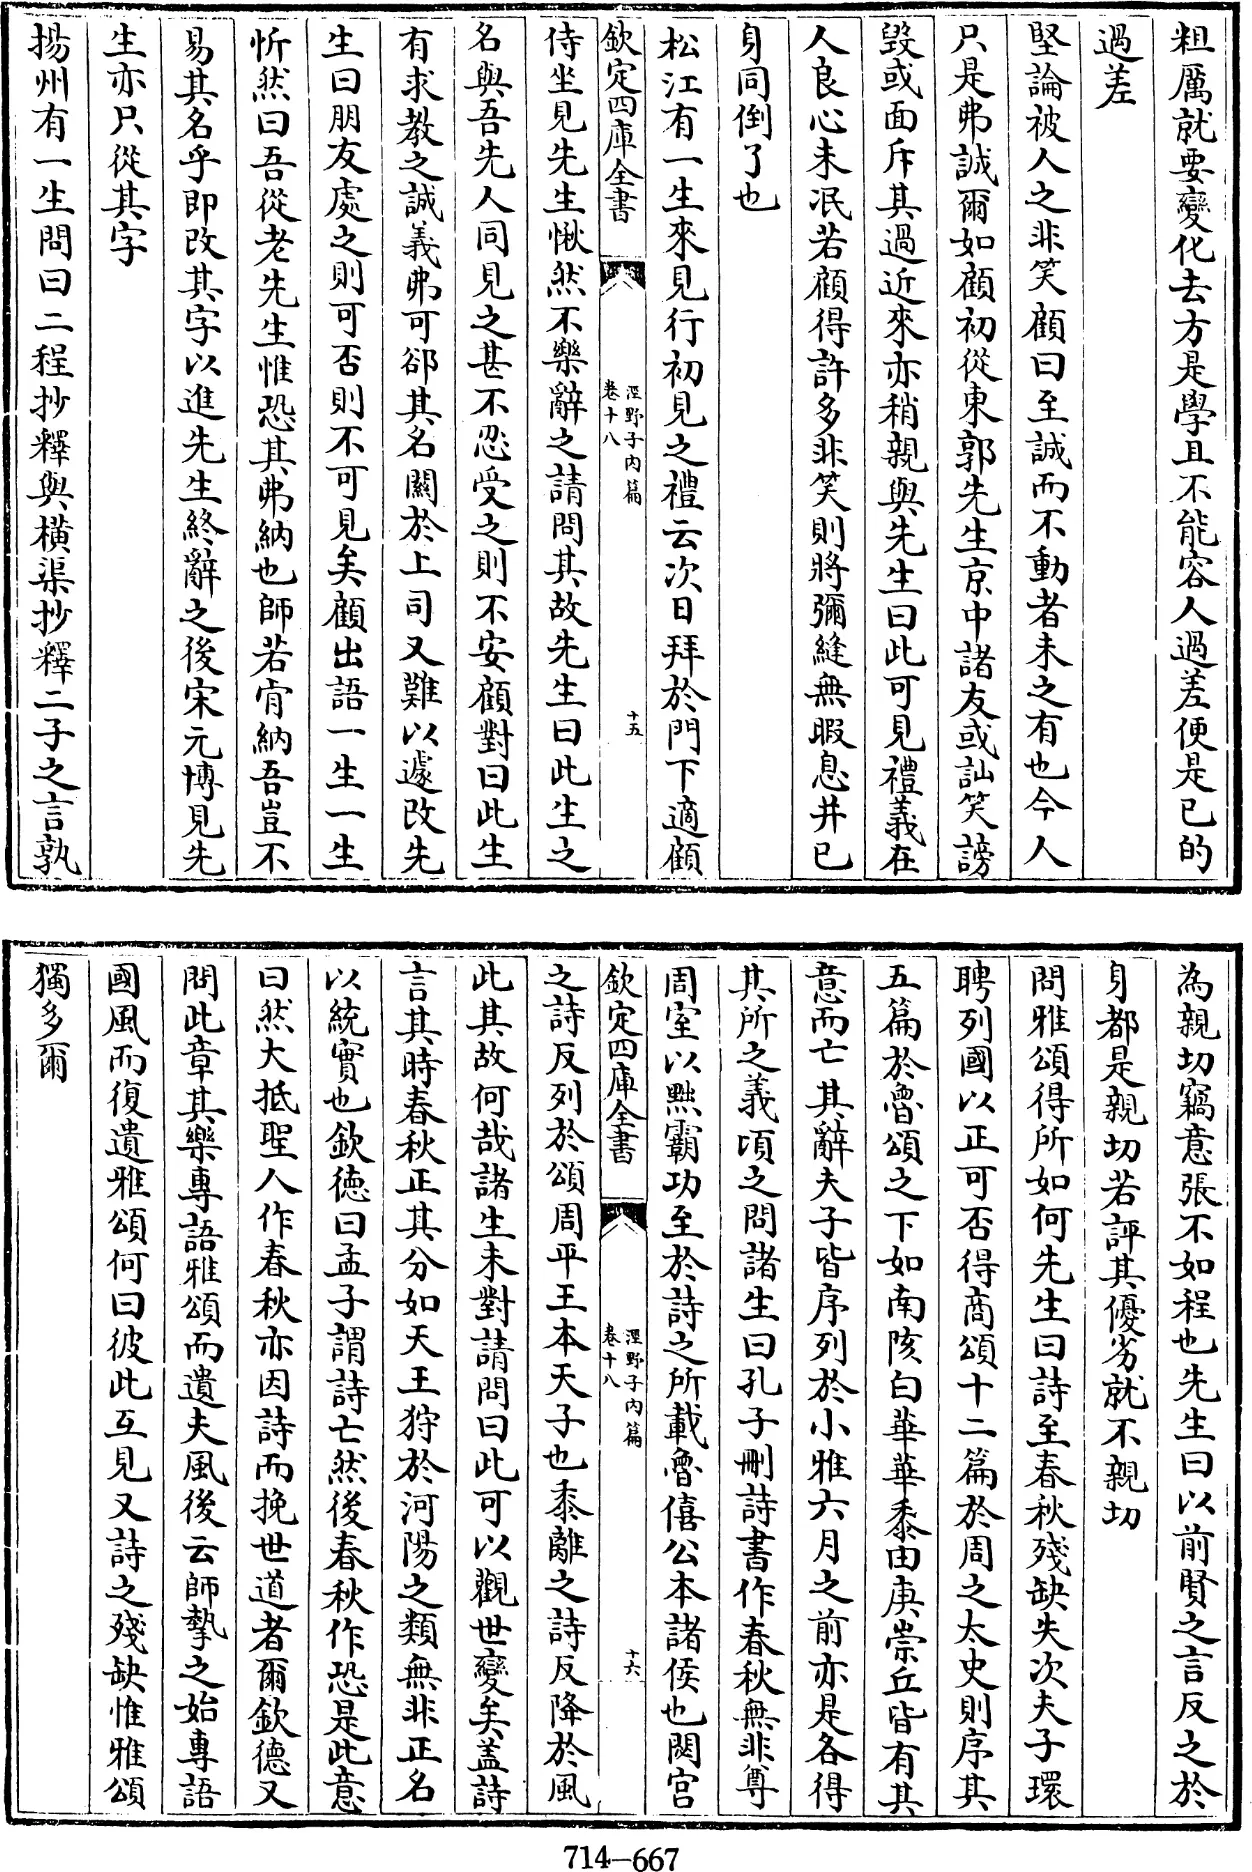 粗厲就要變化去方是學且不能容人過差便是已的
過差
堅論被人之非笑顧曰至誠而不動者未之有也今人
只是弗誠爾如顧初從東郭先生京中諸友或訕笑謗
毀或面斥其過近來亦稍親與先生曰此可見禮義在
人良心未泯若顧得許多非笑則將彌縫無暇息并已
身同倒了也
松江有一生來見行初見之禮云次日拜於門下適顧
欽定四庫全書
涇野子內篇
卷十八
十五
侍坐見先生愀然不樂辭之請問其故先生曰此生之
名與吾先人同見之甚不忍受之則不安顧對曰此生
有求教之誠義弗可郤其名關於上司又難以遽改先
生曰朋友處之則可否則不可見矣顧出語一生一生
忻然曰吾從老先生惟恐其弗納也師若肯納吾豈不
易其名乎即改其字以進先生終辭之後宋元博見先
生亦只從其字
揚州有一生問曰二程抄釋與橫渠抄釋二子之言孰
為親切竊意張不如程也先生曰以前賢之言反之於
身都是親切若評其優劣就不親切
問雅頌得所如何先生曰詩至春秋殘缺失次夫子環
聘列國以正可否得商頌十二篇於周之太史則序其
五篇於魯頌之下如南陔白華華黍由庚崇丘皆有其
意而亡其辭夫子皆序列於小雅六月之前亦是各得
其所之義頃之問諸生曰孔子刪詩書作春秋無非尊
周室以黜霸功至於詩之所載魯僖公本諸侯也閟宮
欽定四庫全書
涇野子內篇
卷十八
十六
之詩反列於頌周平王本天子也黍離之詩反降於風
此其故何哉諸生未對請問曰此可以觀世變矣蓋詩
言其時春秋正其分如天王狩於河陽之類無非正名
以統實也欽德曰孟子謂詩亡然後春秋作恐是此意
曰然大抵聖人作春秋亦因詩而挽世道者爾欽德又
問此章其樂專語雅頌而遺夫風後云師摯之始專語
國風而復遺雅頌何曰彼此互見又詩之殘缺惟雅頌
獨多爾
714-667